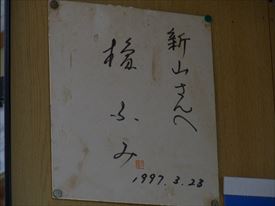 新山さんへ
檀ふみ
1997.3.23